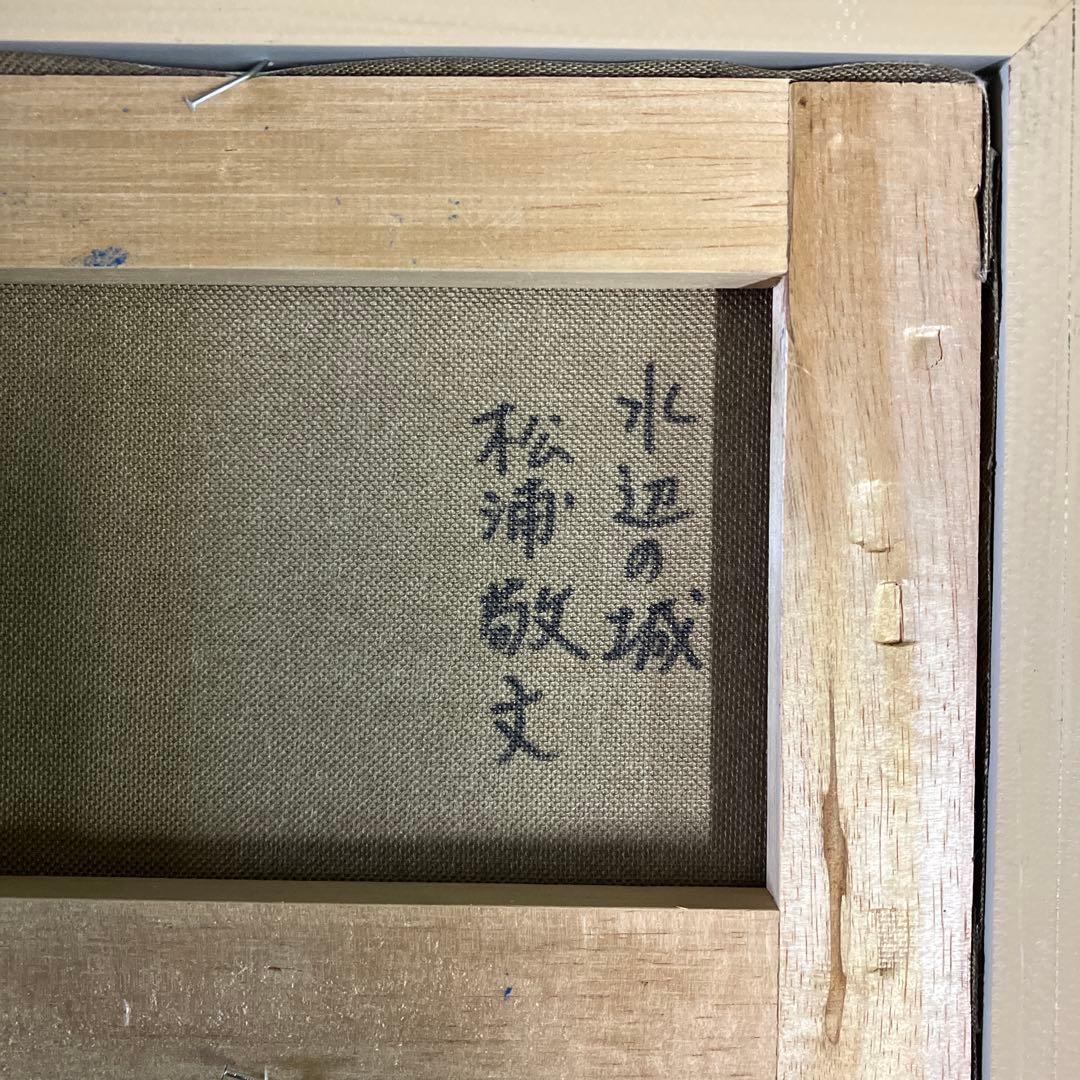 水辺の城
松浦敬文